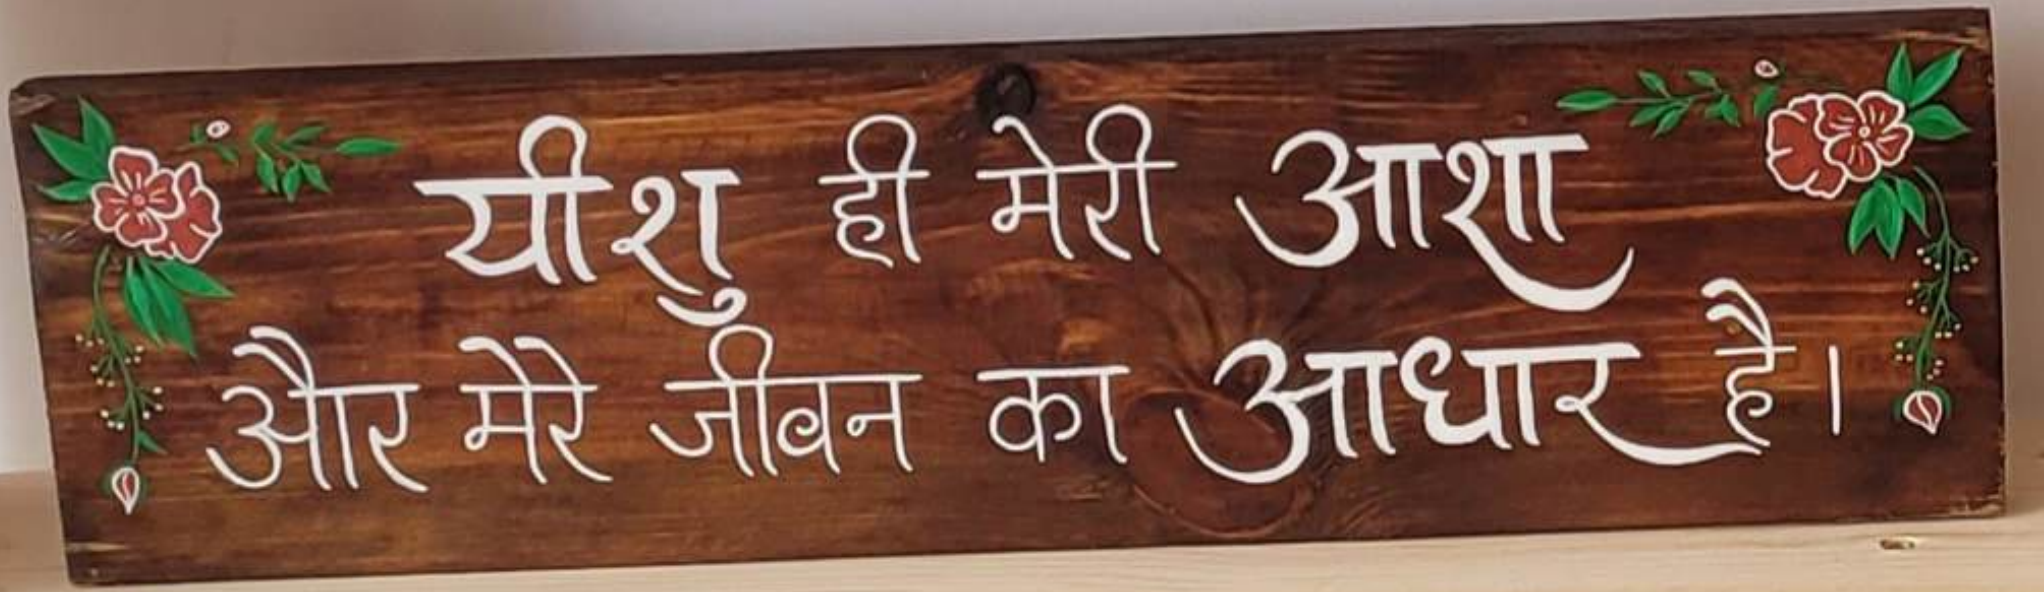 यीशु ही मेरी आशा
और मेरे जीवन का आधार है।